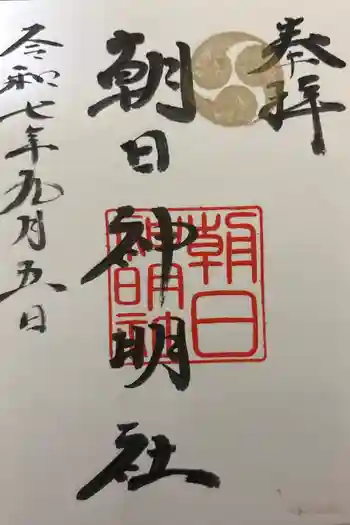 奉拝
朝日神明社
朝日神明社
令和七年九月五日